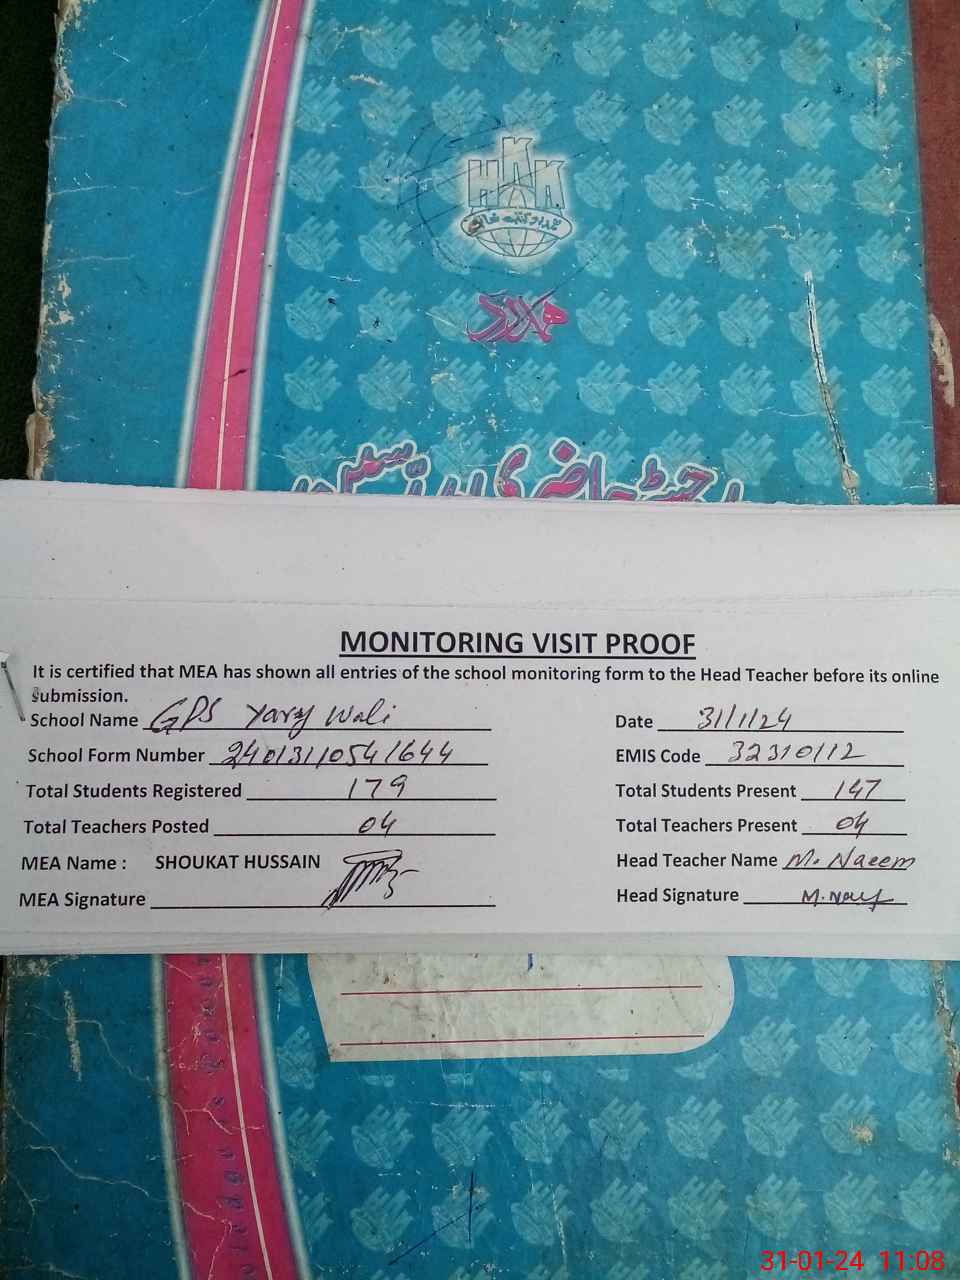 HKK
ہمدرد کتب خانہ
ہمدرد
رجسٹر حاضری
MONITORING VISIT PROOF
It is certified that MEA has shown all entries of the school monitoring form to the Head Teacher before its online
submission.
School Name GPS Yary Wali Date 31/1/24
School Form Number 24013110541644 EMIS Code 32310112
Total Students Registered 179 Total Students Present 147
Total Teachers Posted 04 Total Teachers Present 04
MEA Name : SHOUKAT HUSSAIN Head Teacher Name M. Naeem
MEA Signature Head Signature
31-01-24 11:08